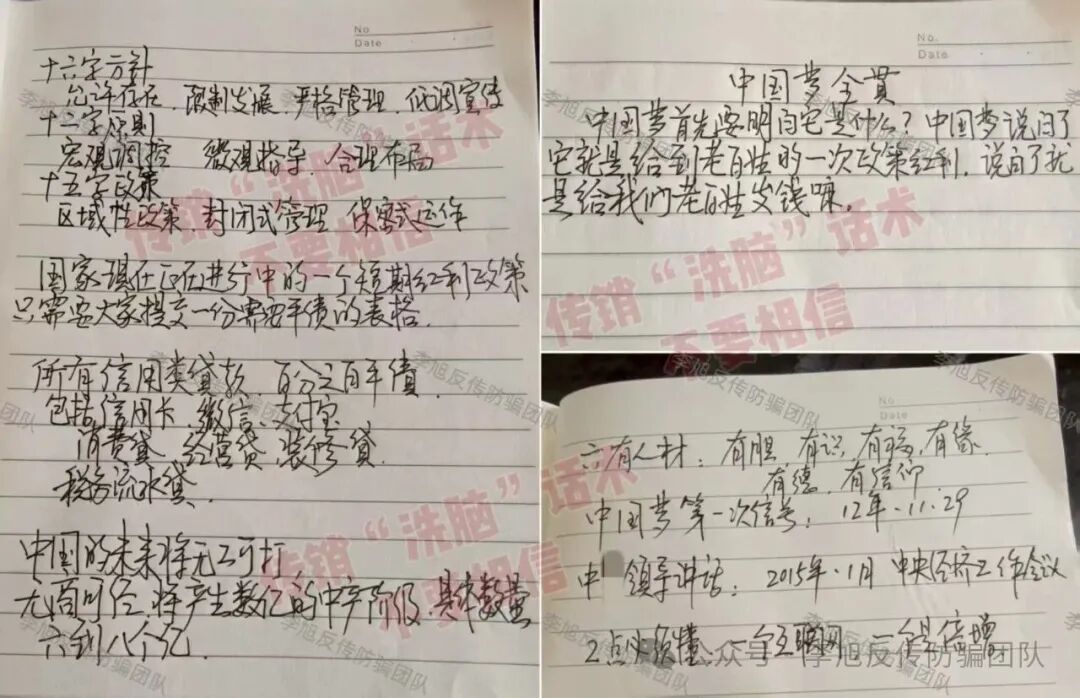 No
Date
十六字方针
允许存在、限制发展、严格管理、低调宣传
十二字原则
宏观调控 微观指导、合理布局
十五字政策
区域性政策、封闭式管理 保密式运作
国家现在正在进行中的一个短期红利政策
只需要大家提交一份需要平债的表格.
所有信用类贷款 百分之百平债
包括信用卡、微信、支付宝
消费贷 经营贷、装修贷.
税务流水贷.
中国的未来将无工可打
无商可经、将产生数亿的中产阶级、具体数量
六到八个亿.
No.
Date
中国梦全贯
中国梦首先要明白它是什么?中国梦说白了
它就是给到老百姓的一次政策红利.说白了就
是给我们老百姓发钱嘛.
No
Date
六有人材:有胆、有识、有福、有缘、
有德、有信仰
中国梦第一次信号:12年.11.29
中 领导讲话:2015年.1月 中央经济工作会议
2点必须懂 一个互联网 一个是倍增
传销“洗脑”话术
不要相信
传销“洗脑”话术
不要相信
传销“洗脑”话术
不要相信
传销“洗脑”话术
不要相信
李旭反传防骗团队
公众号·李旭反传防骗团队